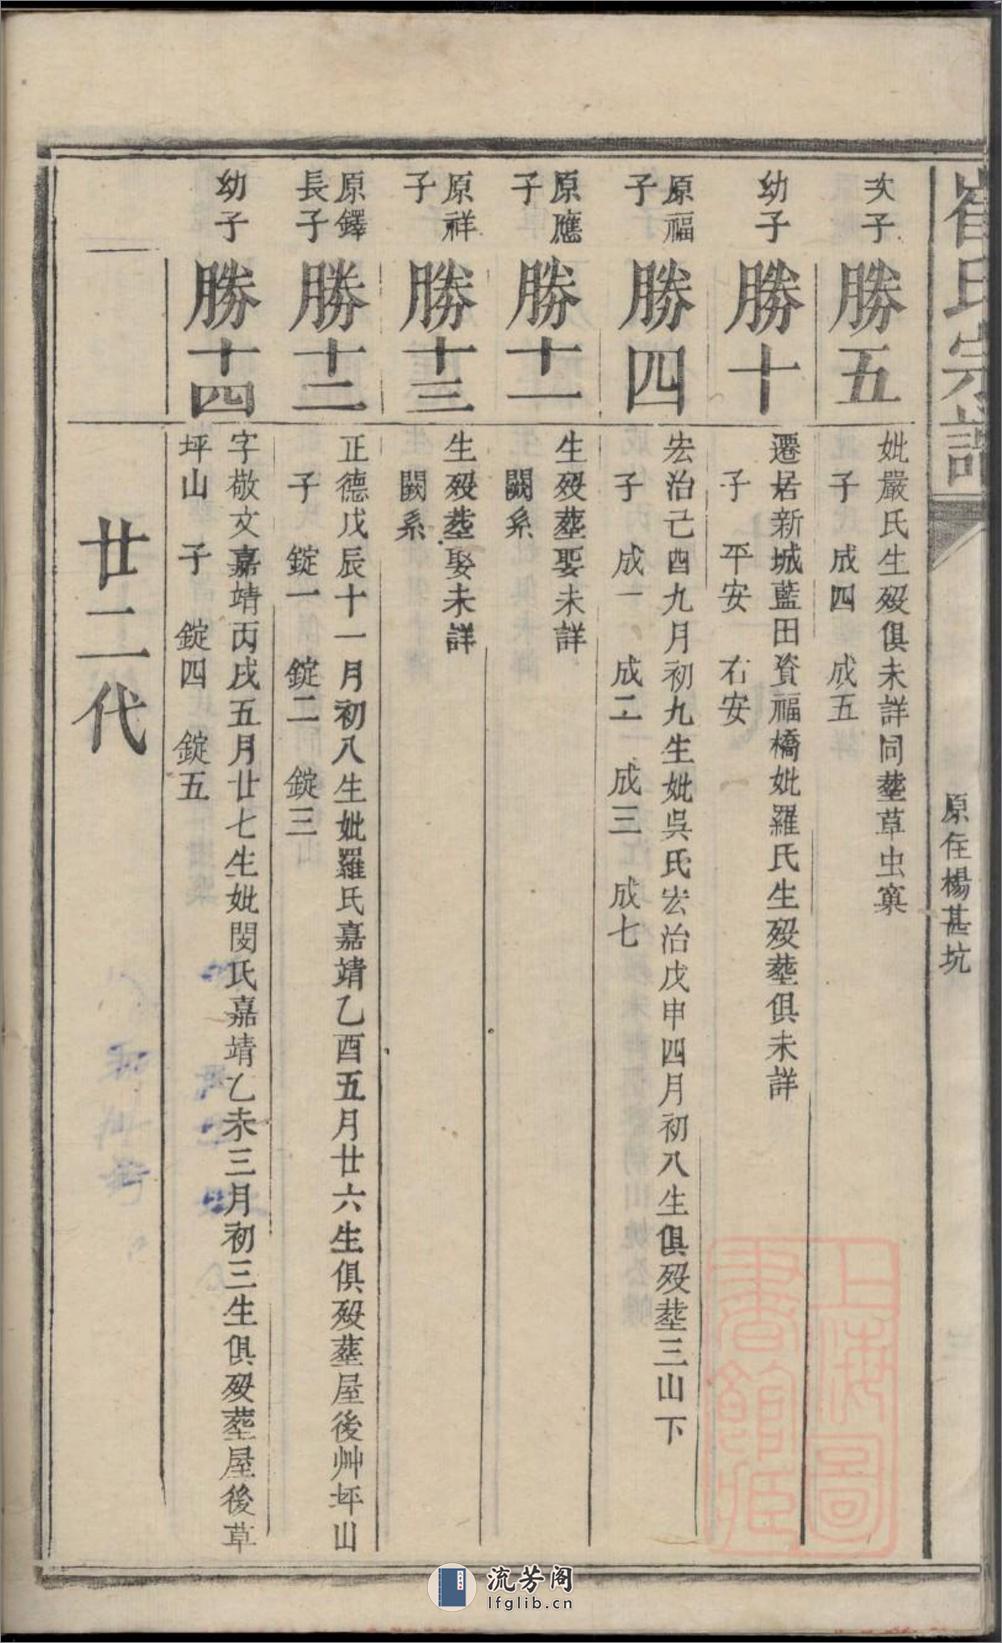 崔氏宗譜
原住楊甚坑
次子
勝五
妣嚴氏生歿俱未詳同塟草虫窠
子 成四 成五
幼子
勝十
遷居新城藍田資福橋妣羅氏生歿塟俱未詳
子 平安 右安
原福
子
勝四
宏治己酉九月初九生妣吳氏宏治戊申四月初八生俱歿塟三山下
子 成一 成二 成三 成七
原應
子
勝十一
生歿塟娶未詳
闕系
原祥
子
勝十三
生歿塟娶未詳
闕系
原鐸
長子
勝十二
正德戊辰十一月初八生妣羅氏嘉靖乙酉五月廿六生俱歿塟屋後艸坪山
子 錠一 錠二 錠三
幼子
勝十四
字敬文嘉靖丙戌五月廿七生妣閔氏嘉靖乙未三月初三生俱歿塟屋後草
坪山 子 錠四 錠五
廿二代
上海圖
書館藏
流芳阁
lfglib.cn